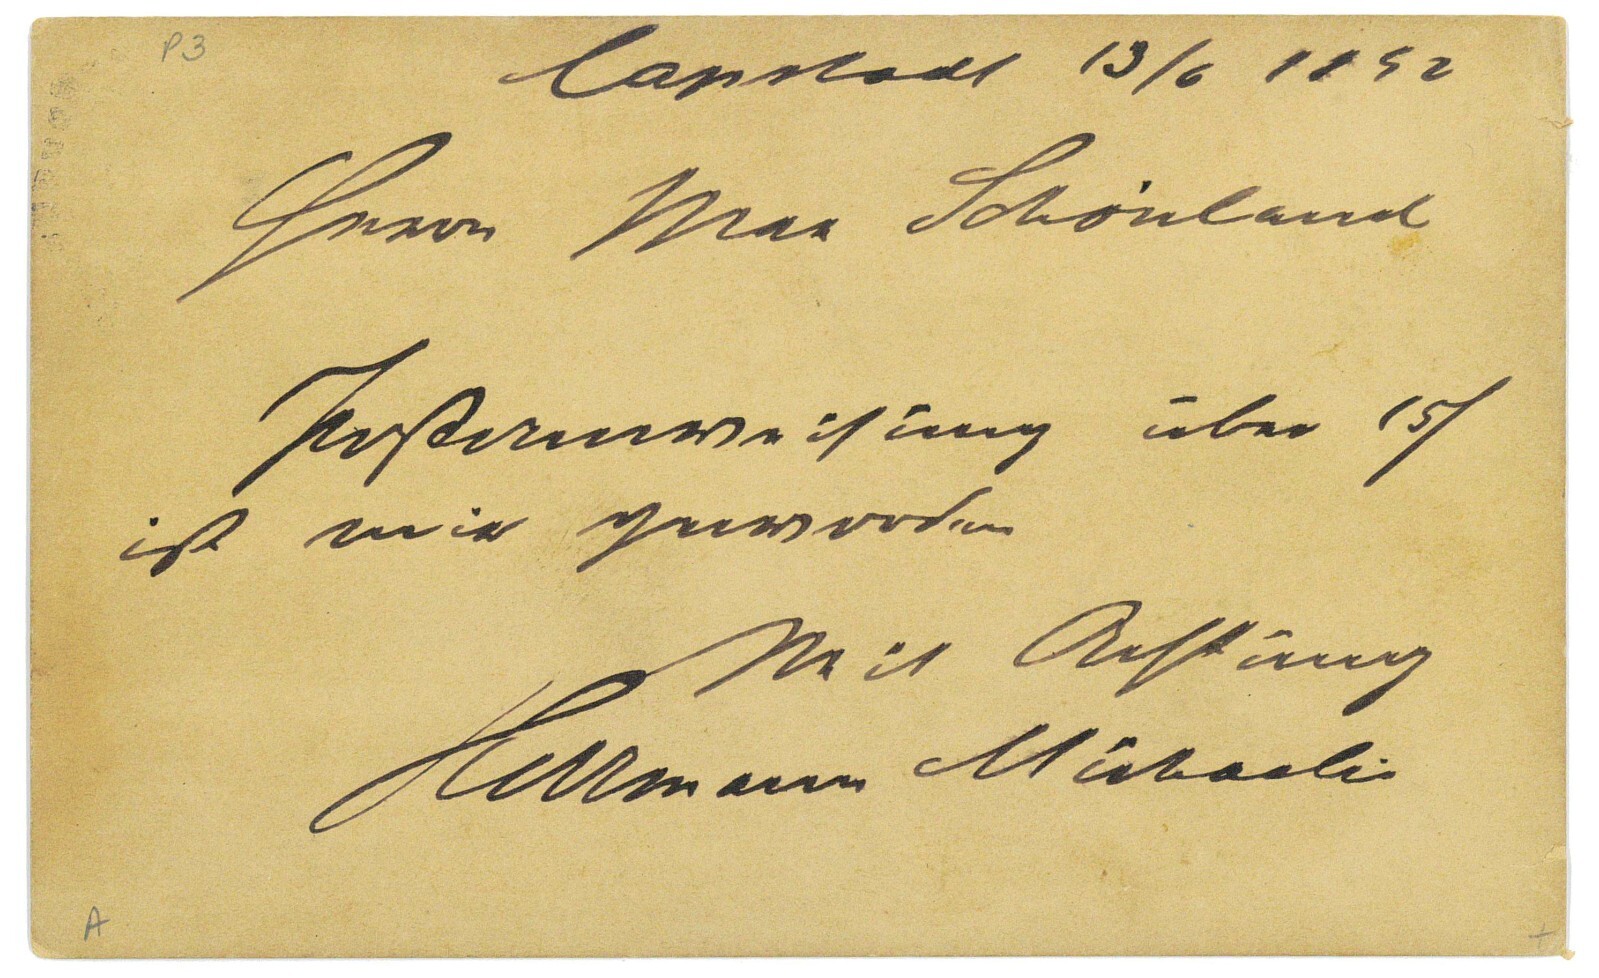 P3
Capstadt 13/6 1892
Herrn Max Schönland
Postanweisung über 15/
ist mir geworden
Mit Achtung
Herrmann Michaelis
A